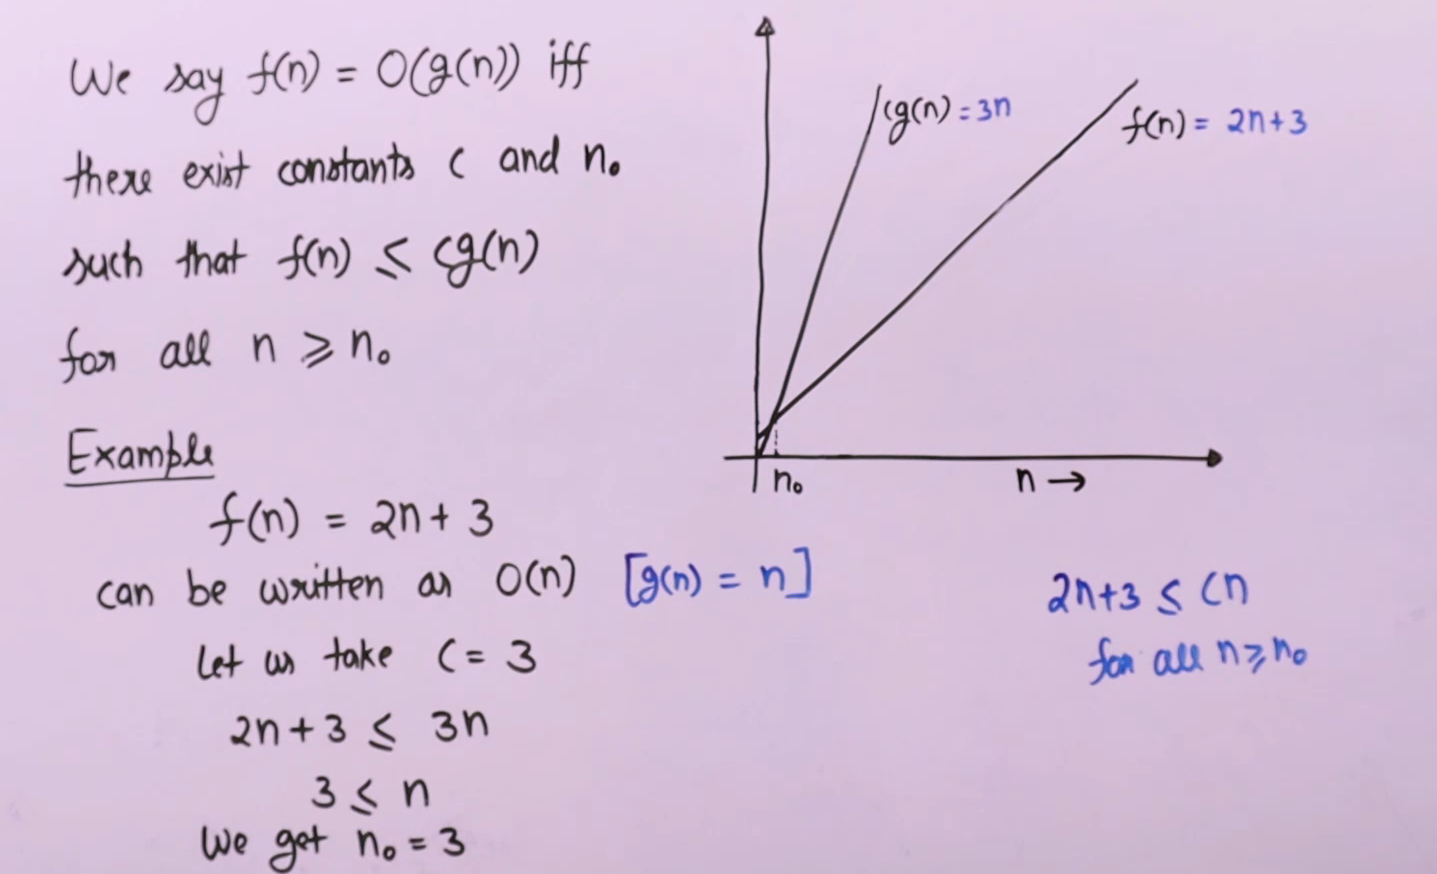 We say f(n) = O(g(n)) iff
there exist constants c and n₀
such that f(n) ≤ cg(n)
for all n ≥ n₀
cg(n) = 3n
f(n) = 2n+3
n₀
n →
Example
f(n) = 2n + 3
can be written as O(n) [g(n) = n]
Let us take c = 3
2n + 3 ≤ 3n
3 ≤ n
We get n₀ = 3
2n+3 ≤ cn
for all n ≥ n₀